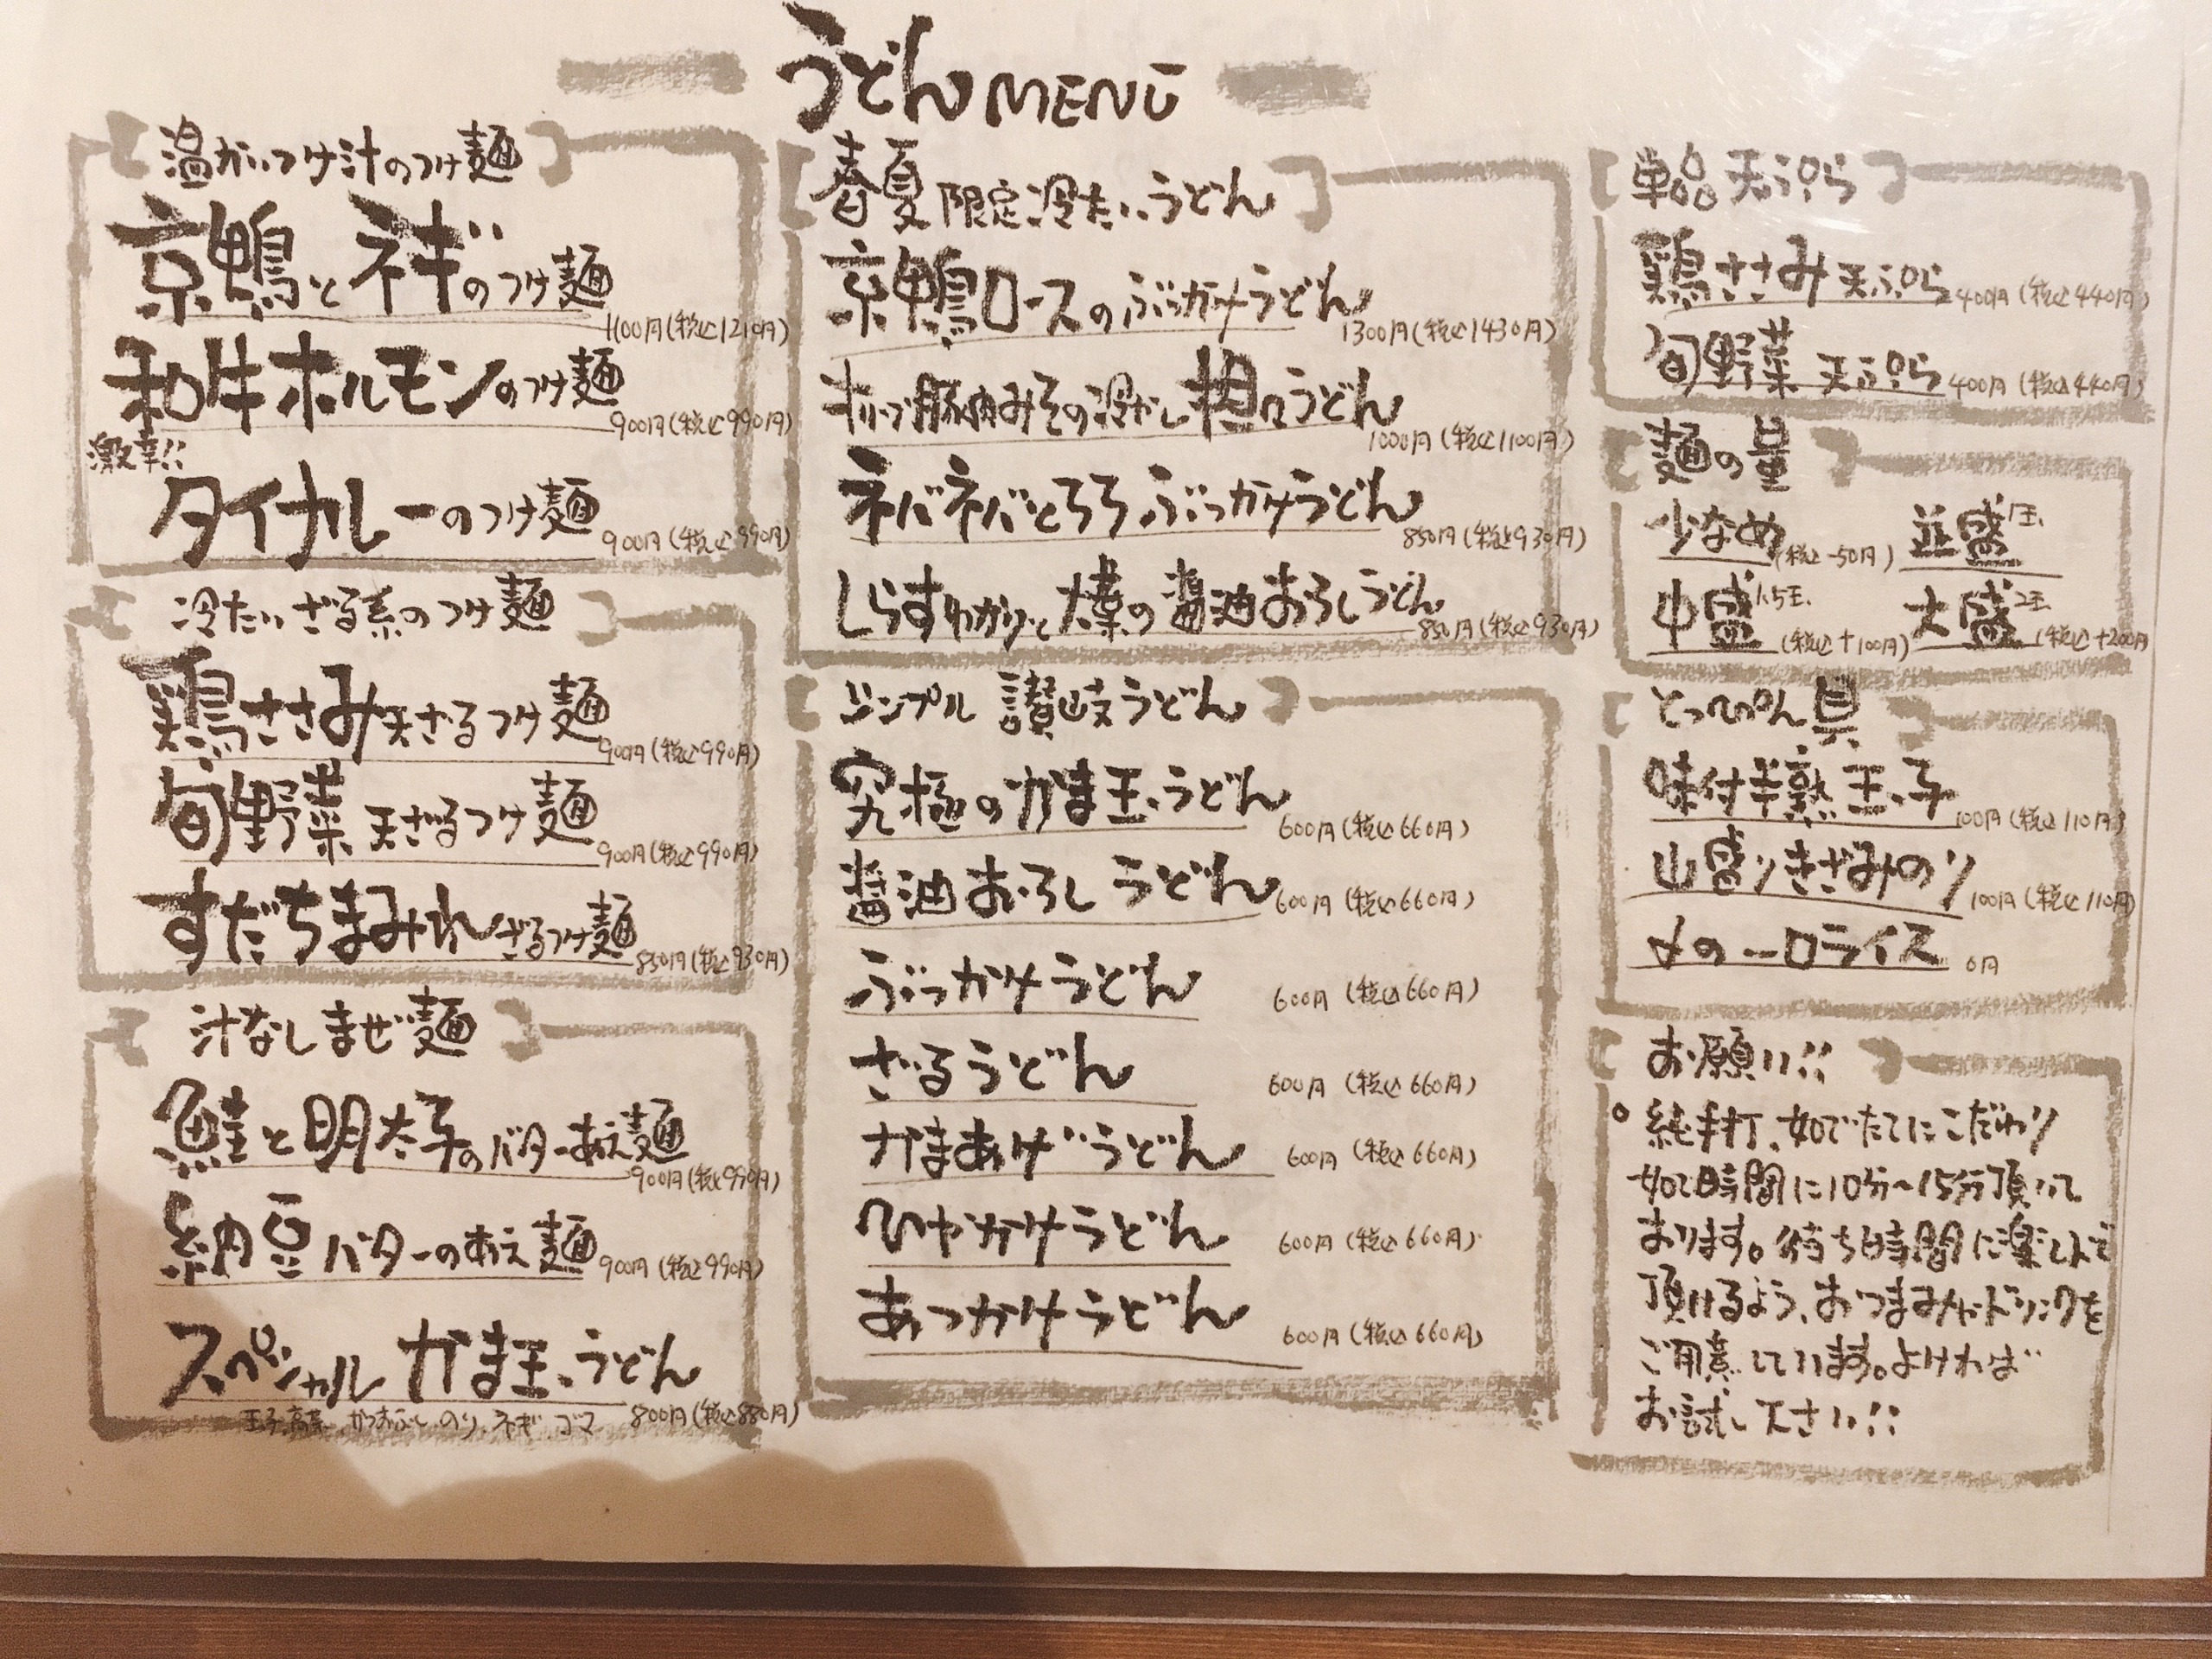 うどんMENU
温かいつけ汁のつけ麺
京鴨とネギのつけ麺
1100円(税込1210円)
和牛ホルモンのつけ麺
900円(税込990円)
激辛!!
タイカレーのつけ麺
900円(税込990円)
冷たいざる系のつけ麺
鶏ささみ天ざるつけ麺
900円(税込990円)
旬野菜天ざるつけ麺
900円(税込990円)
すだちまみれざるつけ麺
850円(税込930円)
汁なしまぜ麺
鮭と明太子のバターあえ麺
900円(税込990円)
納豆バターのあえ麺
900円(税込990円)
スペシャルかま玉うどん
800円(税込880円)
玉子、高菜、かつおぶし、のり、ネギ、ゴマ
春夏限定冷たいうどん
京鴨ロースのぶっかけうどん
1300円(税込1430円)
豚肉みその冷やし担々うどん
1000円(税込1100円)
ネバネバとろろぶっかけうどん
850円(税込930円)
しらすわかりと大葉の醤油おろしうどん
850円(税込930円)
シンプル讃岐うどん
究極のかま玉うどん
600円(税込660円)
醤油おろしうどん
600円(税込660円)
ぶっかけうどん
600円(税込660円)
ざるうどん
600円(税込660円)
かまあげうどん
600円(税込660円)
ひやかけうどん
600円(税込660円)
あつかけうどん
600円(税込660円)
単品天ぷら
鶏ささみ天ぷら
400円(税込440円)
旬野菜天ぷら
400円(税込440円)
麺の量
少なめ(税込-50円) 並盛1玉
中盛1.5玉(税込+100円) 大盛2玉(税込+200円)
とっぴん具
味付半熟玉子
100円(税込110円)
山盛りきざみのり
100円(税込110円)
〆の一口ライス 0円
お願い!!
○純手打、茹でたてにこだわり
茹で時間に10分~15分頂いて
おります。待ち時間に楽しんで
頂けるよう、おつまみやドリンクを
ご用意しています。よければ
お試し下さい!!